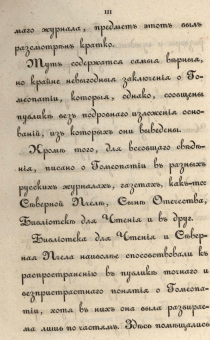 III
маго журнала, предметъ этотъ былъ
разсмотрѣнъ кратко.
Тутъ содержатся самыя вѣрныя,
но крайне невыгодныя заключенія о Го-
меопатіи, которыя, однако, сообщены
публикѣ безъ подробнаго изложенія осно-
ваній, изъ которыхъ они выведены.
Кромѣ того, для всеобщаго свѣдѣ-
нія, писано о Гомеопатіи въ разныхъ
русскихъ журналахъ, газетахъ, какъ-то:
Сѣверной Пчелѣ, Сынъ Отечества,
Библіотекѣ для Чтенія и въ друг.
Библіотека для Чтенія и Сѣвер-
ная Пчела наиболѣе способствовали къ
распространенію въ публикѣ точнаго и
безпристрастнаго понятія о Гомеопа-
тіи, хотя въ нихъ она была разбирае-
ма лишь по частямъ. Здѣсь помѣщались